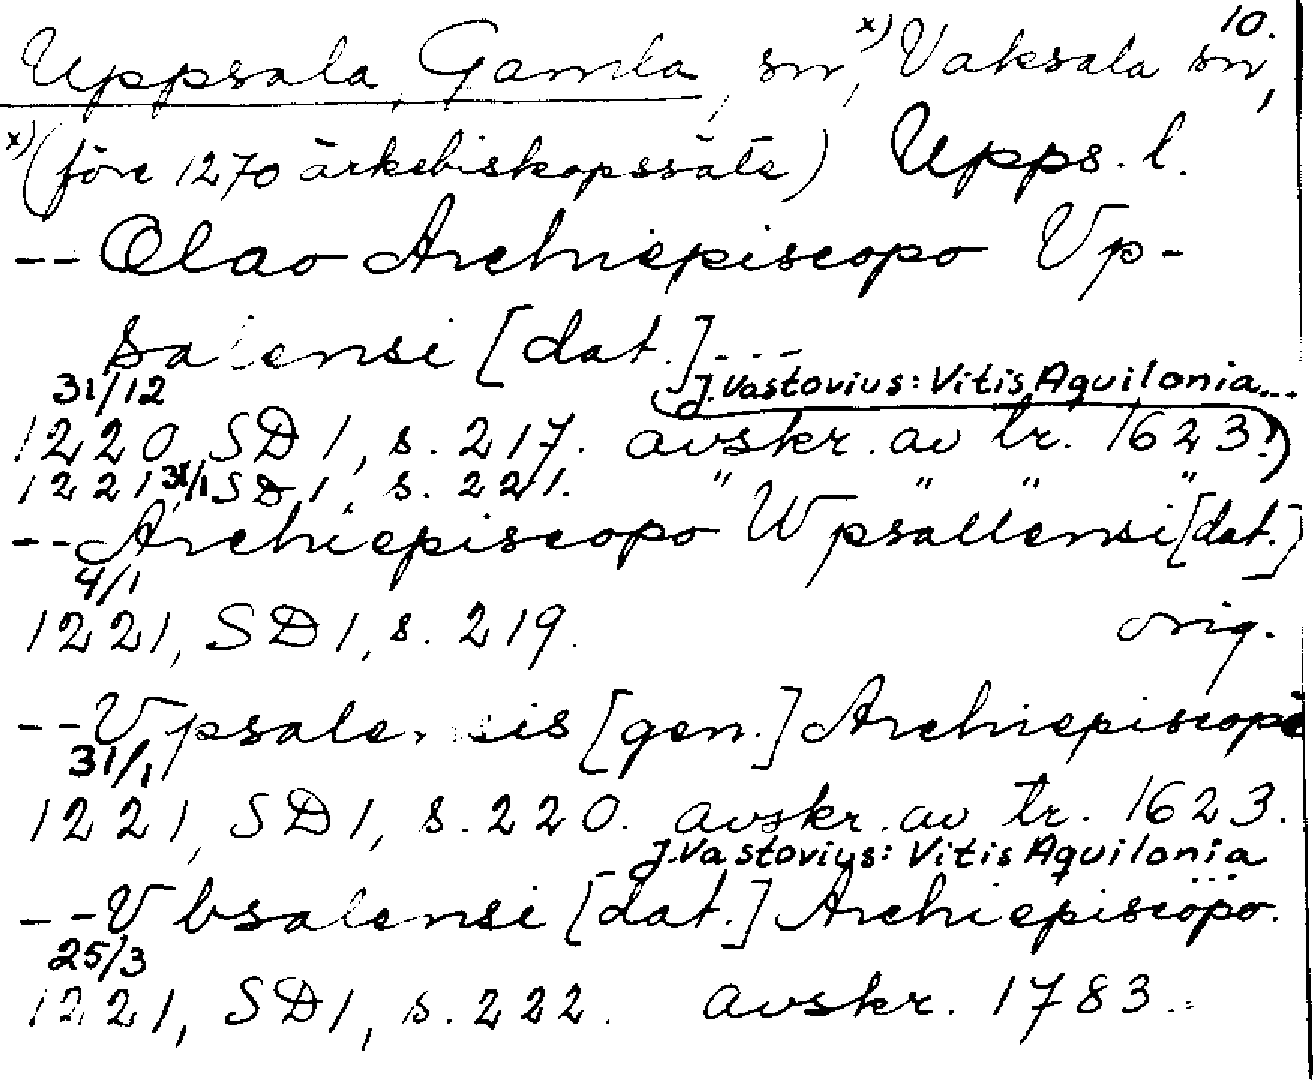 10.
Uppsala, Gamla, sn, x) Vaksala sn,
x) (före 1270 ärkebiskopssäte) Upps. l.
-- Olao Archiepiscopo Vp-
salensi [dat.]---
31/12 J. Vastovius: Vitis Aquilonia...
1220, SD 1, s. 217. avskr. av tr. 1623.)
1221 31/1 SD 1, s. 221. " " " "
-- Archiepiscopo Wpsallensi [dat.]
4/1
1221, SD 1, s. 219. orig.
-- Vpsalensis [gen.] Archiepiscopi
31/1
1221, SD 1, s. 220. avskr. av tr. 1623.
J. Vastovius: Vitis Aquilonia...
-- Vbsalensi [dat.] Archiepiscopo.
25/3
1221, SD 1, s. 222. avskr. 1783.